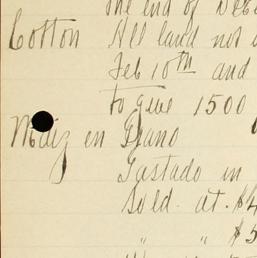 the end of Dec
Cotton All land not
Feb 10th and
to give 1500
Maiz en Grano
Gastado in
Sold. at. $4
" " $5